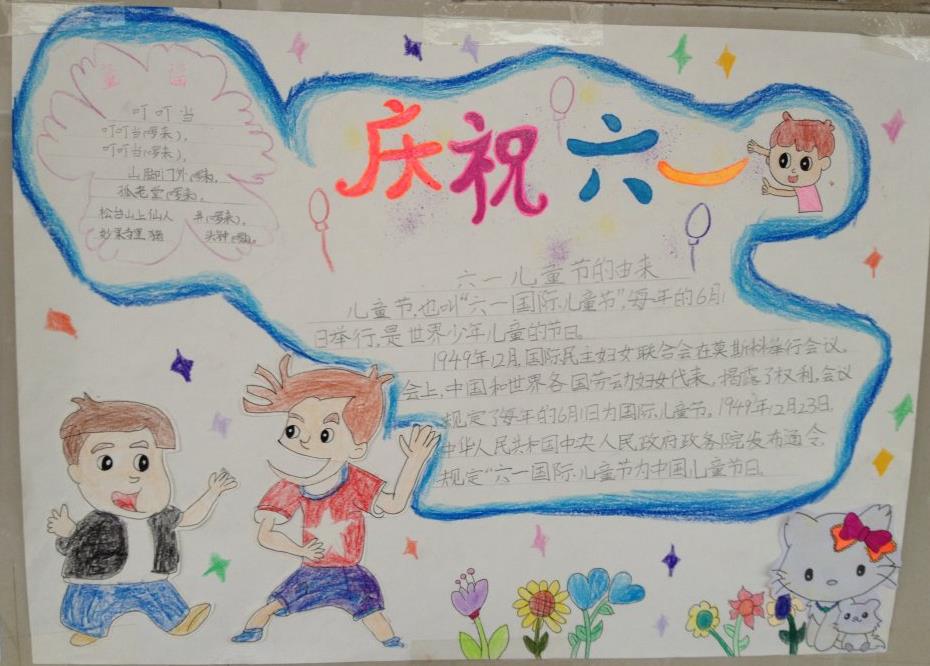 童谣
叮叮当
叮叮当(啰来),
叮叮当(啰来),
山脚门外(啰来),
孤老堂(啰来),
松台山上仙人 井(啰来),
妙果寺里猪 头钟(啰来)。
庆祝六一
六一儿童节的由来
儿童节,也叫“六一国际儿童节”,每年的6月1
日举行,是世界少年儿童的节日。
1949年12月,国际民主妇女联合会在莫斯科举行会议,
会上,中国和世界各国劳动妇女代表,揭露了权利,会议
规定了每年的6月1日为国际儿童节。1949年12月23日,
中华人民共和国中央人民政府政务院发布通令,
规定“六一国际儿童节为中国儿童节日